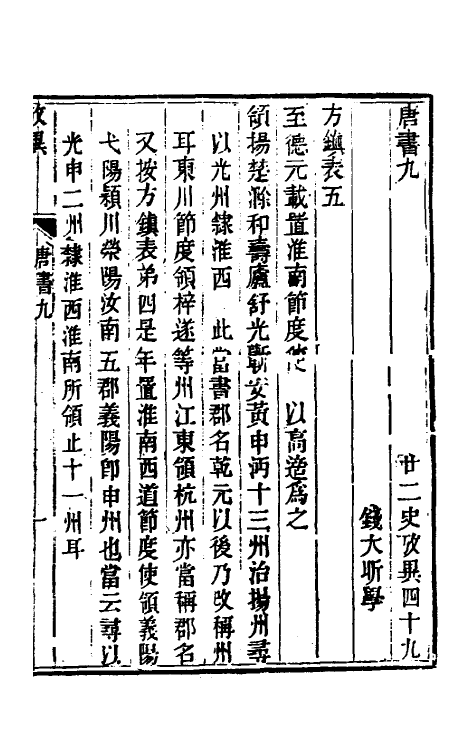 唐書九　廿二史攷異四十九
錢大昕學
方鎮表五
至德元載置淮南節度使　以高適爲之
領揚楚滁和壽廬舒光蘄安黃申沔十三州治揚州尋
以光州隸淮西　此當書郡名乾元以後乃改稱州
耳東川節度領梓遂等州江東領杭州亦當稱郡名
又按方鎮表弟四是年置淮南西道節度使領義陽
弋陽潁川滎陽汝南五郡義陽卽申州也當云尋以
光申二州隸淮西淮南所領止十一州耳
攷異
唐書九
一